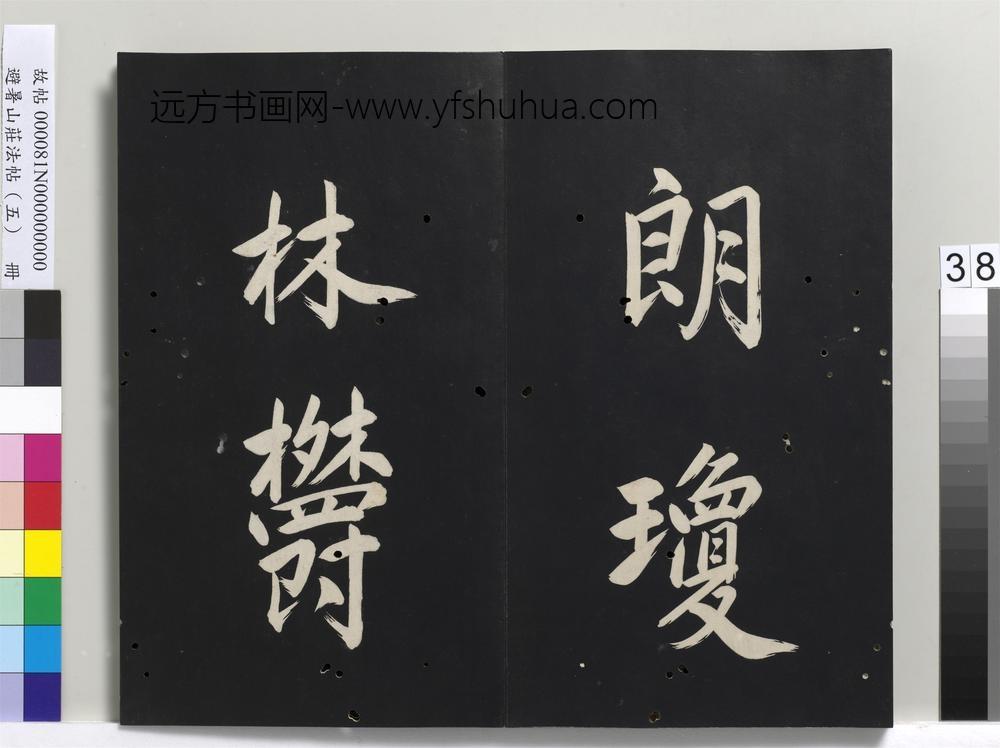 远方书画网-www.yfshuhua.com
故帖 000081N000000000
避暑山莊法帖（五） 冊
38
朗
瓊
林
欝